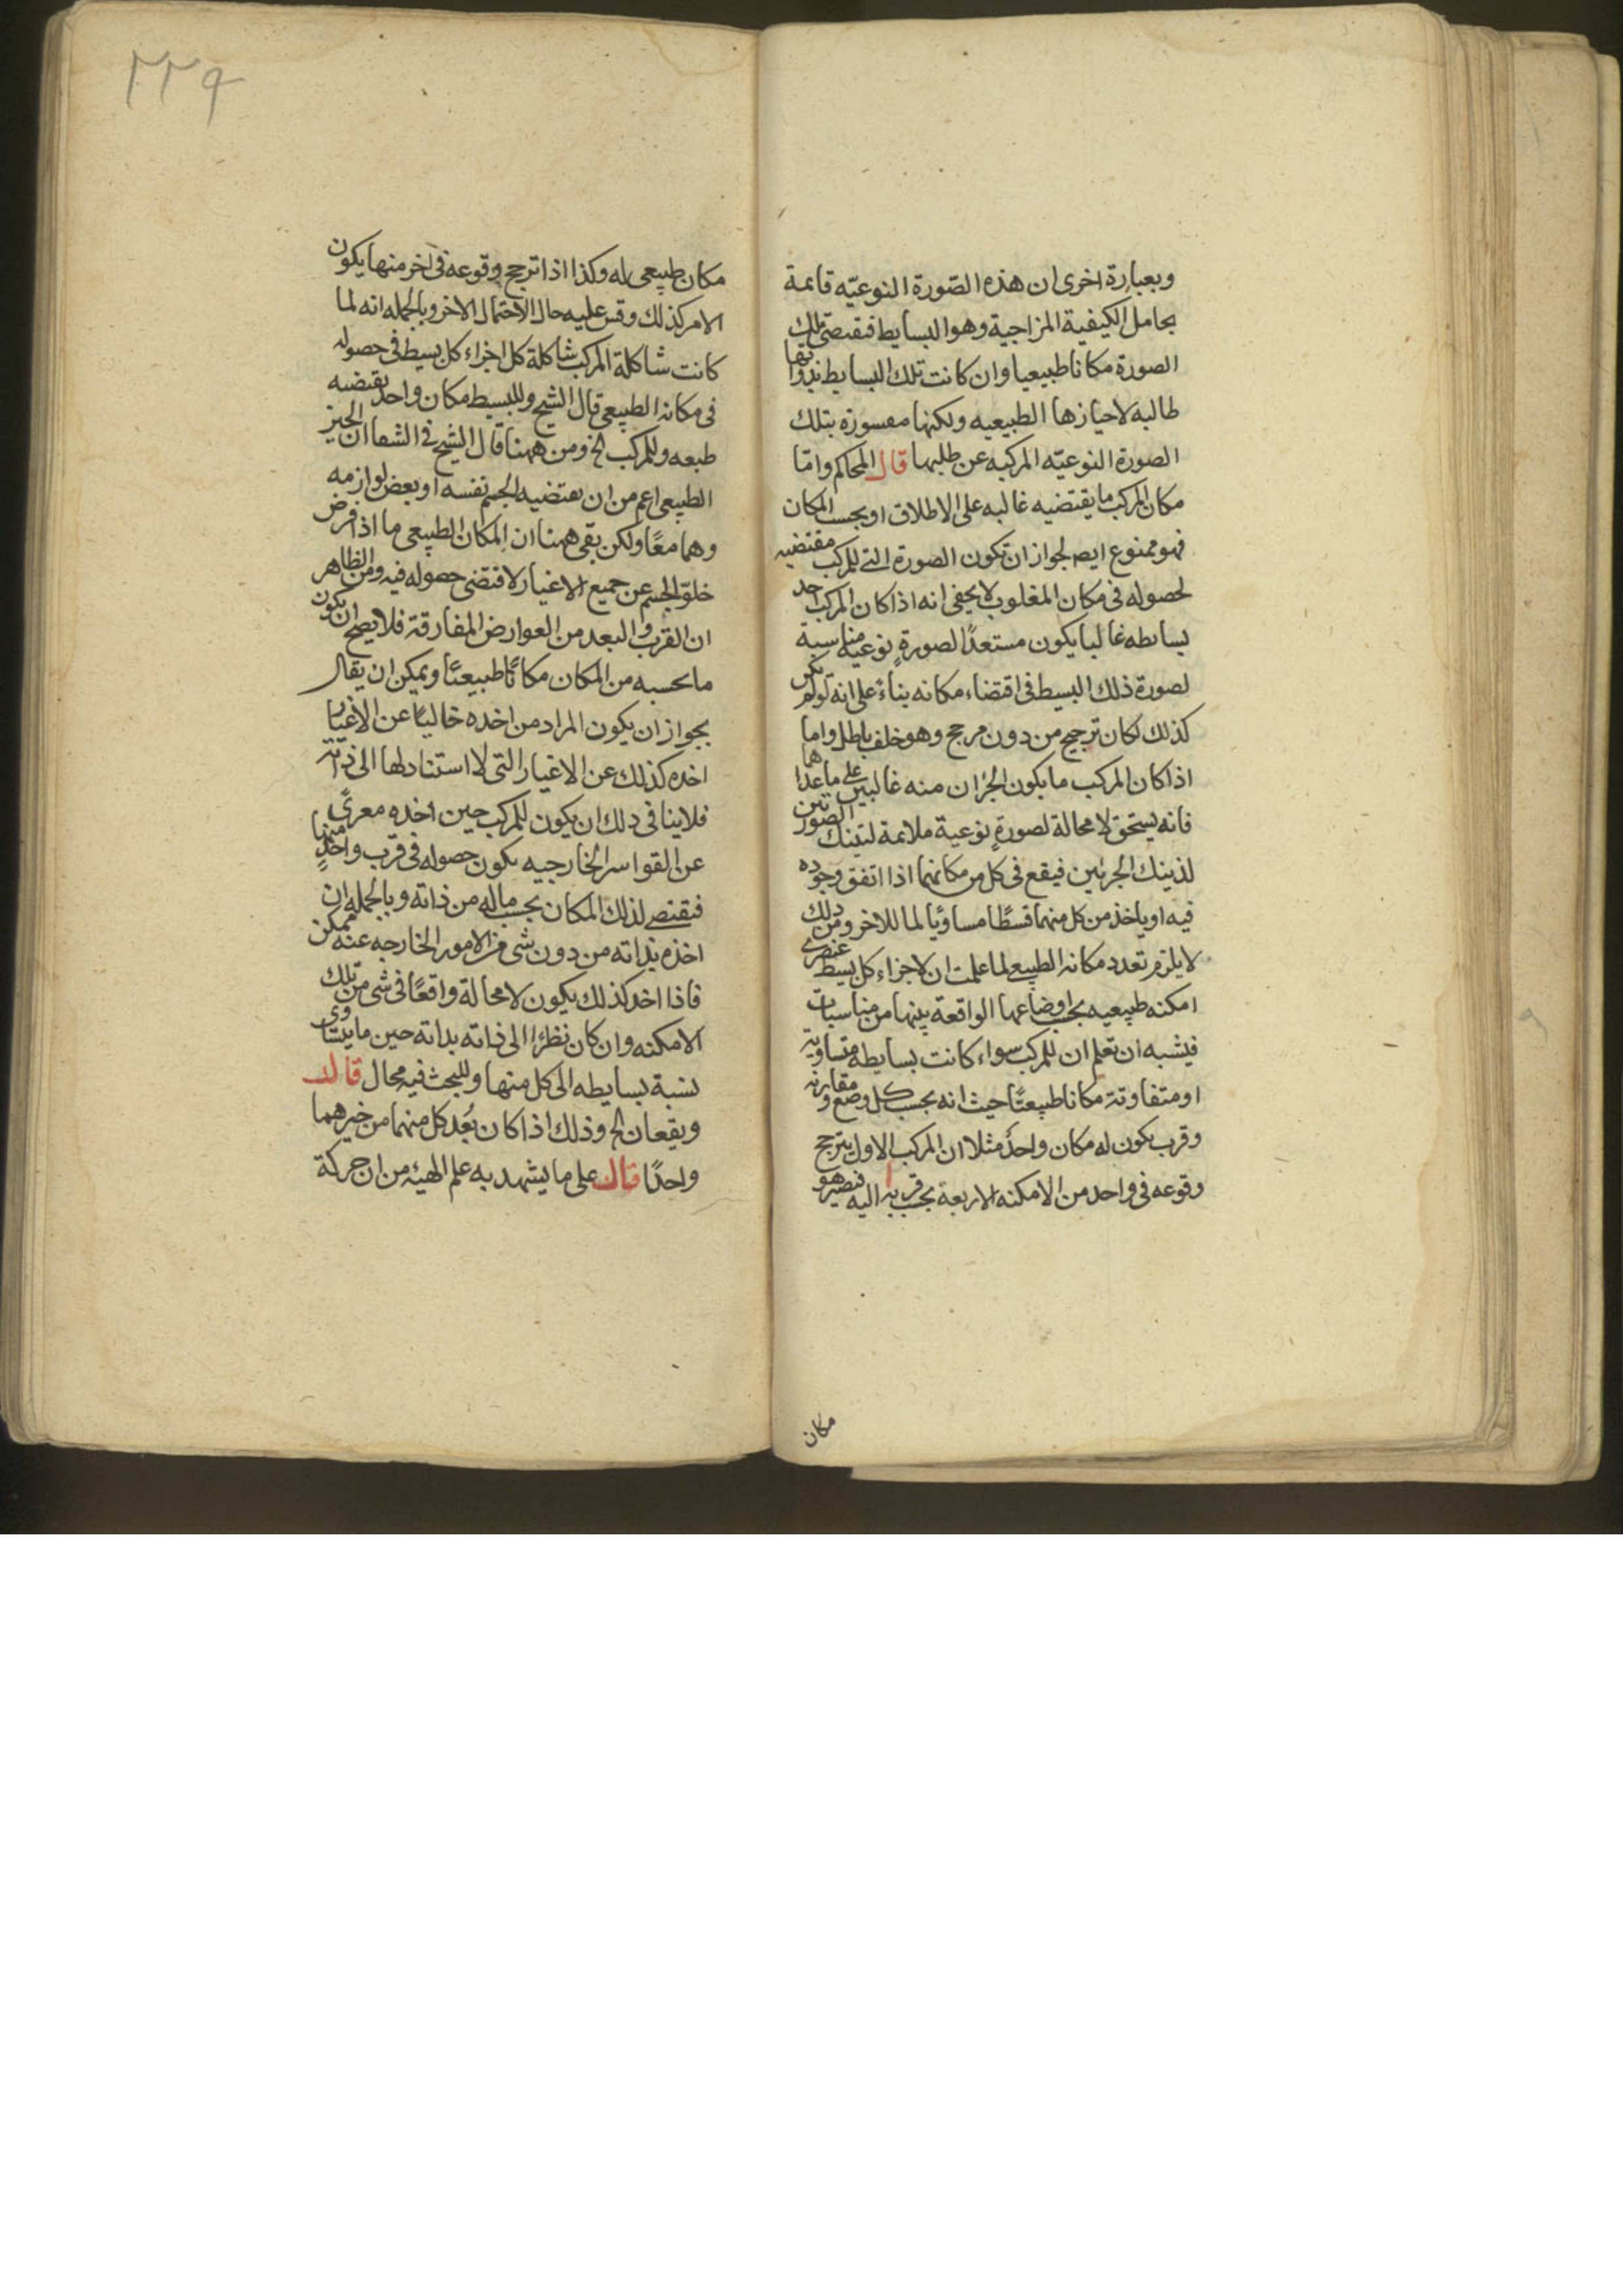 وبعبارة اخرى ان هذه الصّورة النوعيّه قائمة
بحامل الكيفية المزاجية وهو البسايط فتقتضى تلك
الصورة مكانا طبيعيا وان كانت تلك البسايط بذواتها
طالبه لاحيازها الطبيعيه ولكنها مقسورة بتلك
الصورة النوعيّه المركبه عن طلبها قال المحاكم وامّا
مكان المركب ما يقتضيه غالبه على الاطلاق او بحسب المكان
فهو ممنوع ايضا لجواز ان تكون الصورة التى للمركب مقتضيه
لحصوله فى مكان المغلوب لا يخفى انه اذا كان المركب احد
بسائطه غالبا يكون مستعدًا لصورةٍ نوعيه مناسبة
لصورة ذلك البسيط فى اقتضاء مكانه بناءً على انه لو لم يكن
كذلك لكان ترجيح من دون مرجح وهو خلف باطل واما
اذا كان المركب ما يكون الجزان منه غالبين على ما عداهما
فانه يستحق لا محالة لصورةٍ نوعية ملائمة لتينك الصورتين
لذينك الجزئين فيقع فى كل من مكانهما اذا اتفق وجوده
فيه او ياخذ من كل منهما قسطًا مساويًا لما للاخر ومن ذلك
لا يلزم تعدد مكانه الطبيعى لما علمت ان لاجزاء كل بسيط عنصرى
امكنه طبيعيه بحسب اوضاعها الواقعة بينها من مناسبات
فيشبه ان تعلم ان للمركب سواء كانت بسايطه متساويه
او متفاوتة مكانا طبيعيًا حيث انه بحسب كل وضع ومقارنه
وقرب يكون له مكان واحدٌ مثلا ان المركب الاول يترجح
وقوعه فى واحد من الامكنه الاربعة بحسب قربه اليه فتصير هو
مكان
٢٢٩
مكان طبيعى له وكذا اذا ترجح وقوعه فى اخر منها يكون
الامر كذلك وقس عليه حال الاحتمال الاخر وبالجمله انه لما
كانت شاكلة المركب شاكلة كل اجزاء كل بسيط فى حصوله
فى مكانه الطبيعى قال الشيخ وللبسيط مكان واحد يقتضيه
طبعه وللمركب الخ ومن ههنا قال الشيخ فى الشفا ان الحيز
الطبيعى اعم من ان يقتضيه الجسم نفسه او بعض لوازمه
وهما معًا ولكن بقى ههنا ان المكان الطبيعى ما اذا فرض
خلوّ الجسم عن جميع الاغيار لاقتضى حصوله فيه ومن الظاهر
ان القرب والبعد من العوارض المفارقة فلا يصح ان يكون
ما بحسبه من المكان مكانًا طبيعيًا ويمكن ان يقال
بجواز ان يكون المراد من اخذه خاليًا عن الاغيار
اخذه كذلك عن الاغيار التى لا استناد لها الى ذاته
فلا ينافى ذلك ان يكون للمركب حين اخذه معرىً
عن القواسر الخارجيه يكون حصوله فى قرب واحدٍ منها
فيقتضى لذلك المكان بحسب ماله من ذاته وبالجمله ان
اخذه بذاته من دون شى من الامور الخارجه عنه ممكن
فاذا اخذ كذلك يكون لا محالة واقعًا فى شى من تلك
الامكنه وان كان نظرًا الى ذاته بذاته حين ما يتساوى
نسبة بسايطه الى كل منها وللبحث فيه مجال قال
ويقعان الخ وذلك اذا كان بُعد كل منهما من خيرهما
واحدًا قال على ما يشهد به علم الهيئه من ان حركة